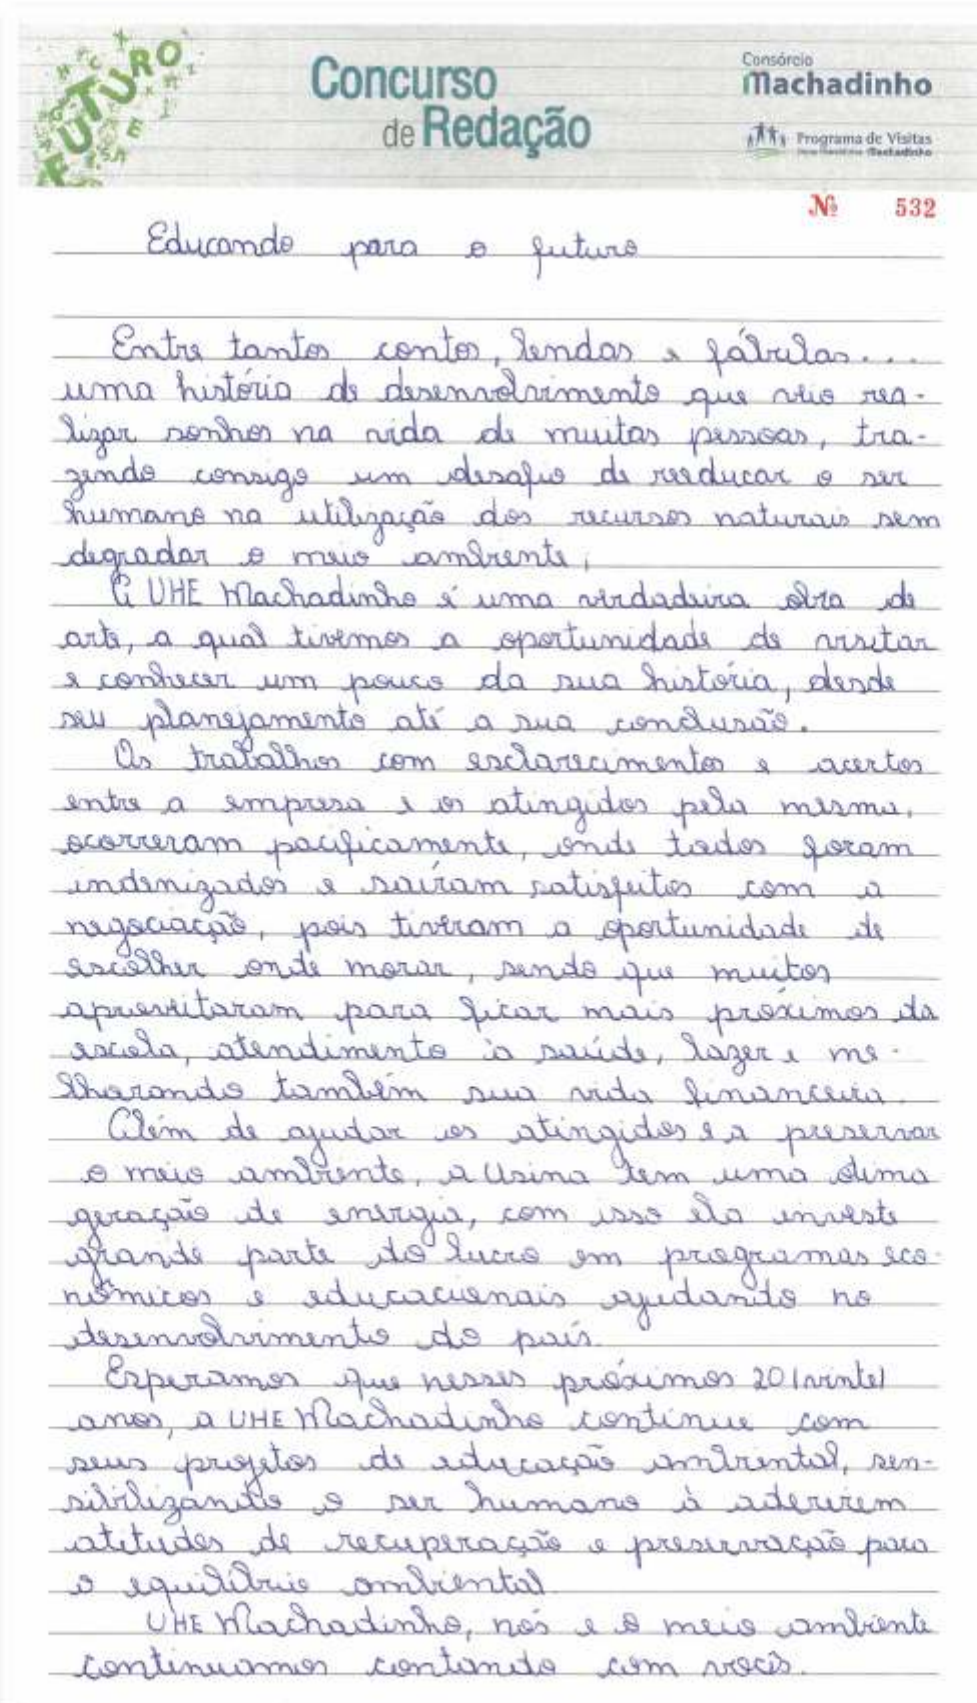 FUTURO
Concurso
de Redação
Consórcio
Machadinho
Programa de Visitas
Nº 532
Educando para o futuro
Entre tantos contos, lendas e fábulas....
uma história de desenvolvimento que veio rea-
lizar sonhos na vida de muitas pessoas, tra-
zendo consigo um desafio de reeducar o ser
humano na utilização dos recursos naturais sem
degradar o meio ambiente,
A UHE Machadinho é uma verdadeira obra de
arte, a qual tivemos a oportunidade de visitar
e conhecer um pouco da sua história, desde
seu planejamento até a sua conclusão.
Os trabalhos com esclarecimentos e acertos
entre a empresa e os atingidos pela mesma,
ocorreram pacificamente, onde todos foram
indenizados e saíram satisfeitos com a
negociação, pois tiveram a oportunidade de
escolher onde morar, sendo que muitos
aproveitaram para ficar mais próximos da
escola, atendimento à saúde, lazer e me-
lhorando também sua vida financeira.
Além de ajudar os atingidos e a preservar
o meio ambiente, a Usina tem uma ótima
geração de energia, com isso ela investe
grande parte do lucro em programas eco-
nômicos e educacionais ajudando no
desenvolvimento do país.
Esperamos que nesses próximos 20 (vinte)
anos, a UHE Machadinho continue com
seus projetos de educação ambiental, sen-
sibilizando o ser humano à aderirem
atitudes de recuperação e preservação para
o equilíbrio ambiental
UHE Machadinho, nós e o meio ambiente
continuamos contando com vocês.